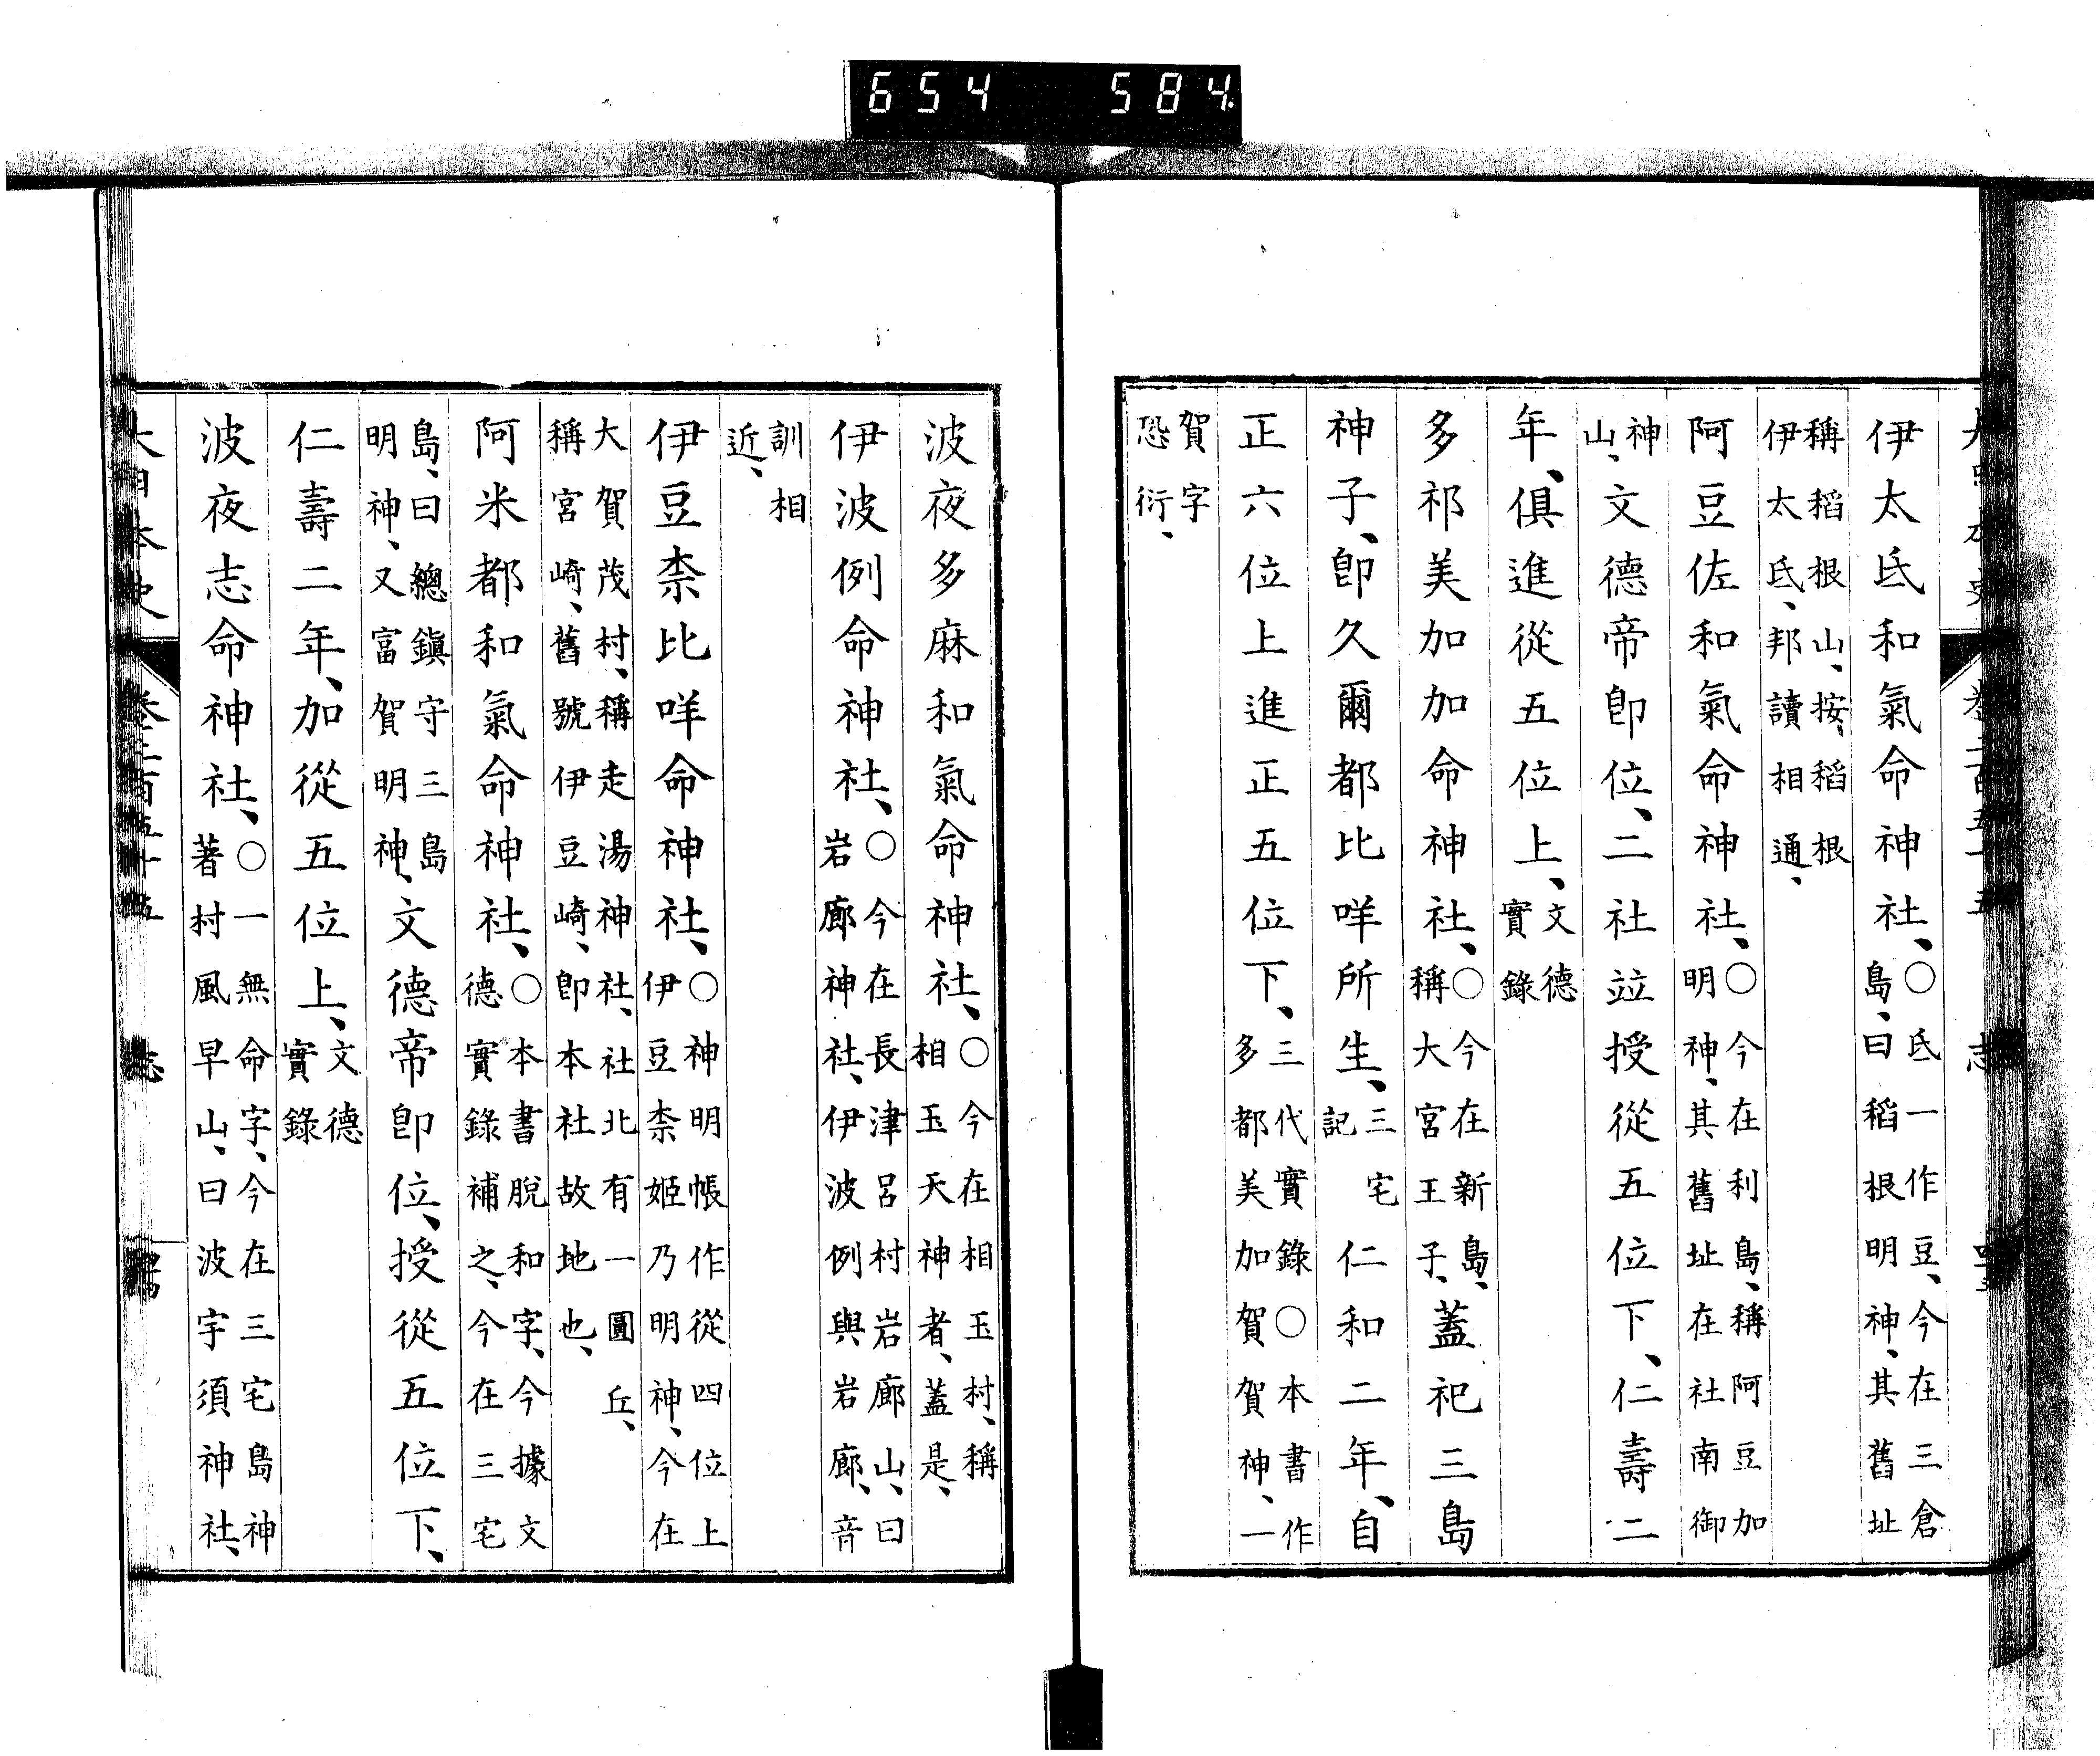 654 584
伊太氐和氣命神社、○氐一作豆、今在三倉島、曰稻根明神、其舊址
稱稻根山、按、稻根伊太氐、邦讀相通、
阿豆佐和氣命神社、○今在利島、稱阿豆加明神、其舊址在社南御
神山、文德帝卽位、二社竝授從五位下、仁壽二
年、俱進從五位上、文德實錄
多祁美加加命神社、○今在新島、稱大宮王子、蓋祀三島
神子、卽久爾都比咩所生、三宅記仁和二年、自
正六位上進正五位下、三代實錄○本書作多都美加賀賀神、一
賀字恐衍、
波夜多麻和氣命神社、○今在相玉村、稱相玉天神者、蓋是、
伊波例命神社、○今在長津呂村岩廊山、曰岩廊神社、伊波例與岩廊、音
訓相近、
伊豆柰比咩命神社、○神明帳作從四位上伊豆柰姬乃明神、今在
大賀茂村、稱走湯神社、社北有一圓丘、稱宮崎、舊號伊豆崎、卽本社故地也、
阿米都和氣命神社、○本書脫和字、今據文德實錄補之、今在三宅
島、曰總鎭守三島明神、又富賀明神、文德帝卽位、授從五位下、
仁壽二年、加從五位上、文德實錄
波夜志命神社、○一無命字、今在三宅島神著村風早山、曰波宇須神社、
大日本史 卷二百五十五 志